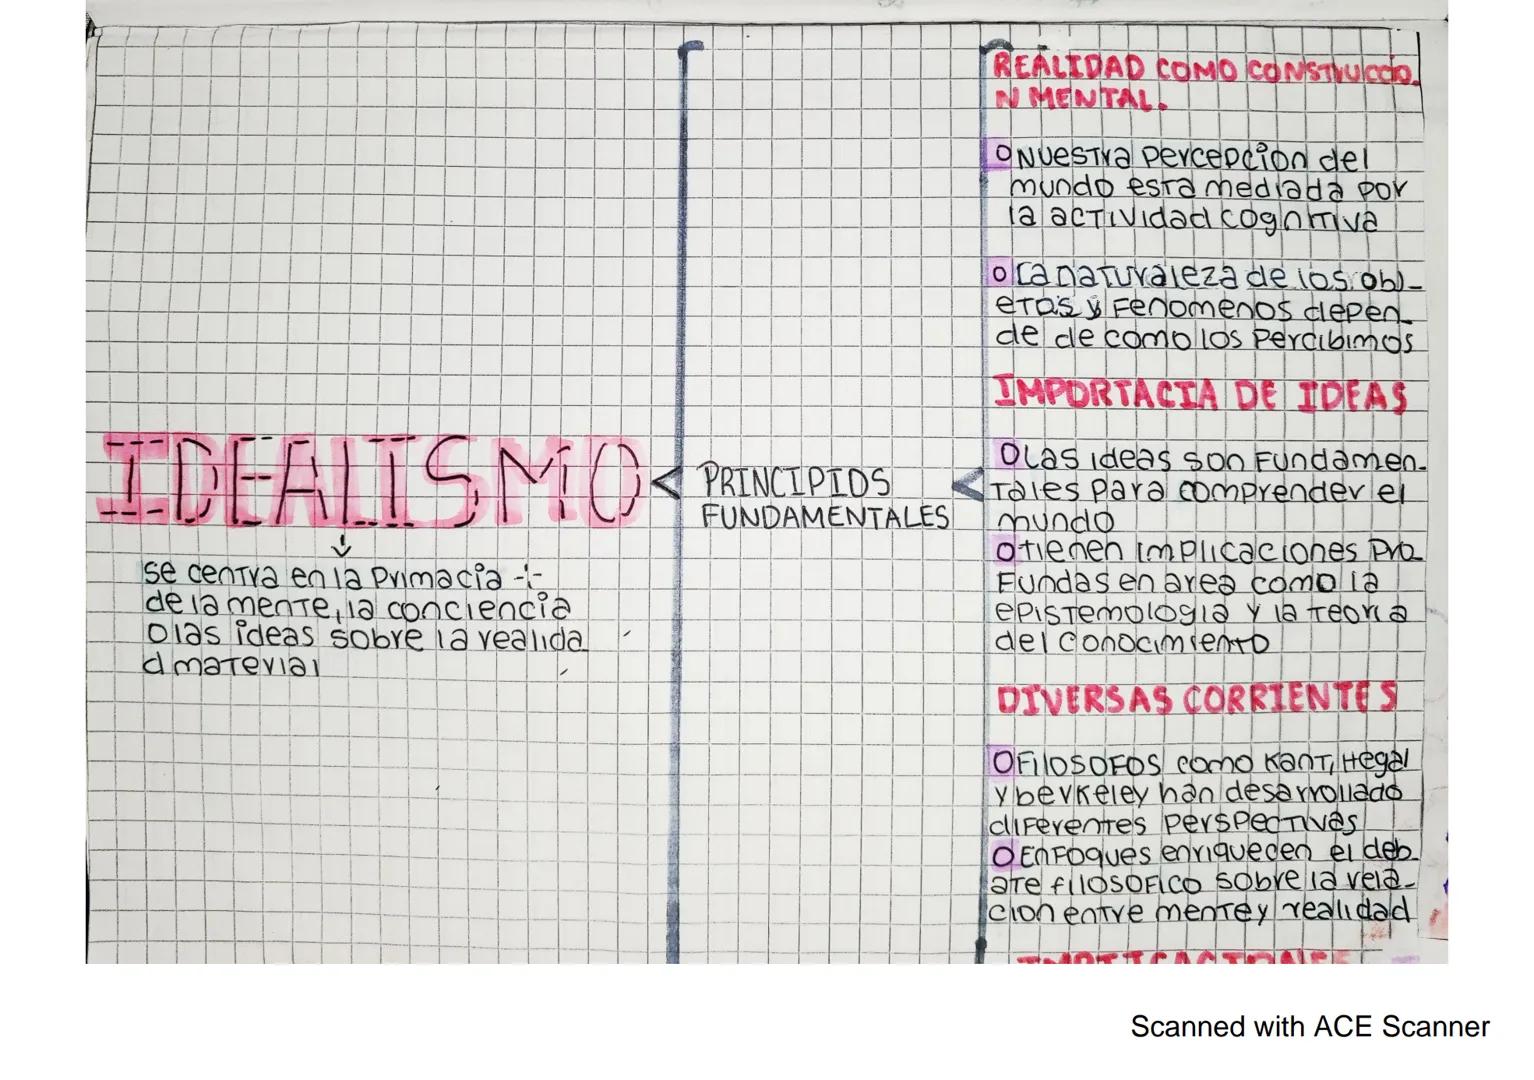 IDEALISMO
se centra en la Primacia
de la mente, la conciencia
o las ideas sobre la realida
d material
PRINCIPIOS
FUNDAMENTALES
REALIDAD COMO CONSTRUCCIO.
N MENTAL.
o Nuestra percepcion del
mundo esta mediada por
la actividad cognitiva
o La naturaleza de los obj-
etos y Fenomenos depen-
de de como los Percibimos
IMPORTACIA DE IDEAS
o Las ideas son Fundamen-
tales para comprender el
mundo
o tienen implicaciones Pro
Fundas en area como la
epistemologia y la teoria
del conocimiento
DIVERSAS CORRIENTES
o Filosofos como Kant, Hegal
y berkeley han desarrollado
diferentes perspectivas
o Enfoques enriquecen el deb-
ate filosofico sobre la rela-
cion entre mente y realidad
IMPLICACIONES
Scanned with ACE Scanner